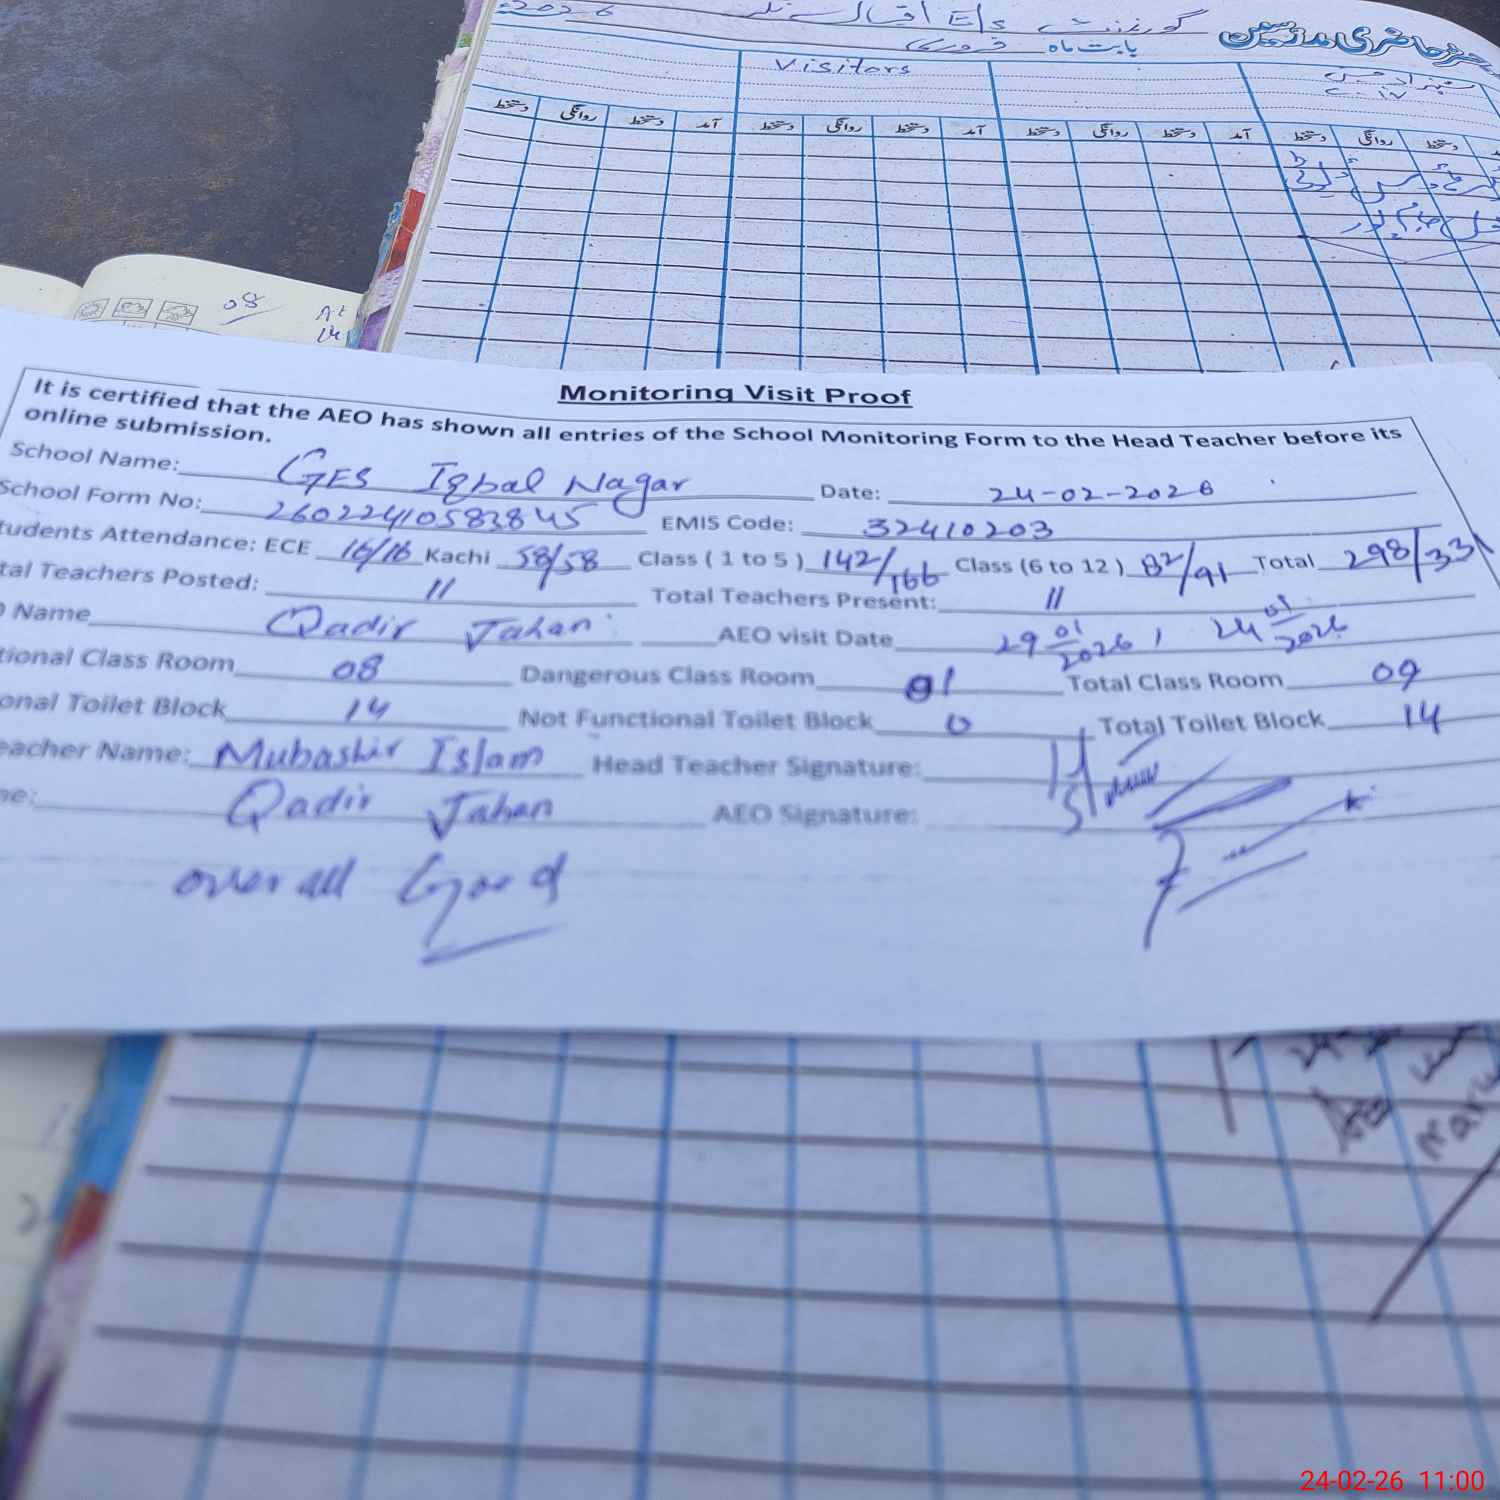 2026 گورنمنٹ E/s اقبال نگر
بابت ماہ فروری
Visitors
دستخط روانگی دستخط آمد دستخط روانگی دستخط آمد دستخط روانگی دستخط آمد دستخط روانگی دستخط
08
Monitoring Visit Proof
It is certified that the AEO has shown all entries of the School Monitoring Form to the Head Teacher before its
online submission.
School Name: GES Iqbal Nagar Date: 24-02-2026
School Form No: 26022410583845 EMIS Code: 32410203
tudents Attendance: ECE 16/16 Kachi 58/58 Class ( 1 to 5 ) 142/166 Class (6 to 12 ) 82/91 Total 298/331
tal Teachers Posted: 11 Total Teachers Present: 11
O Name Qadir Jahan AEO visit Date 29 01/2026, 24 01/2026
tional Class Room 08 Dangerous Class Room 01 Total Class Room 09
onal Toilet Block 14 Not Functional Toilet Block 0 Total Toilet Block 14
eacher Name: Mubashir Islam Head Teacher Signature:
ne: Qadir Jahan AEO Signature:
over all Good
24-02-26 11:00